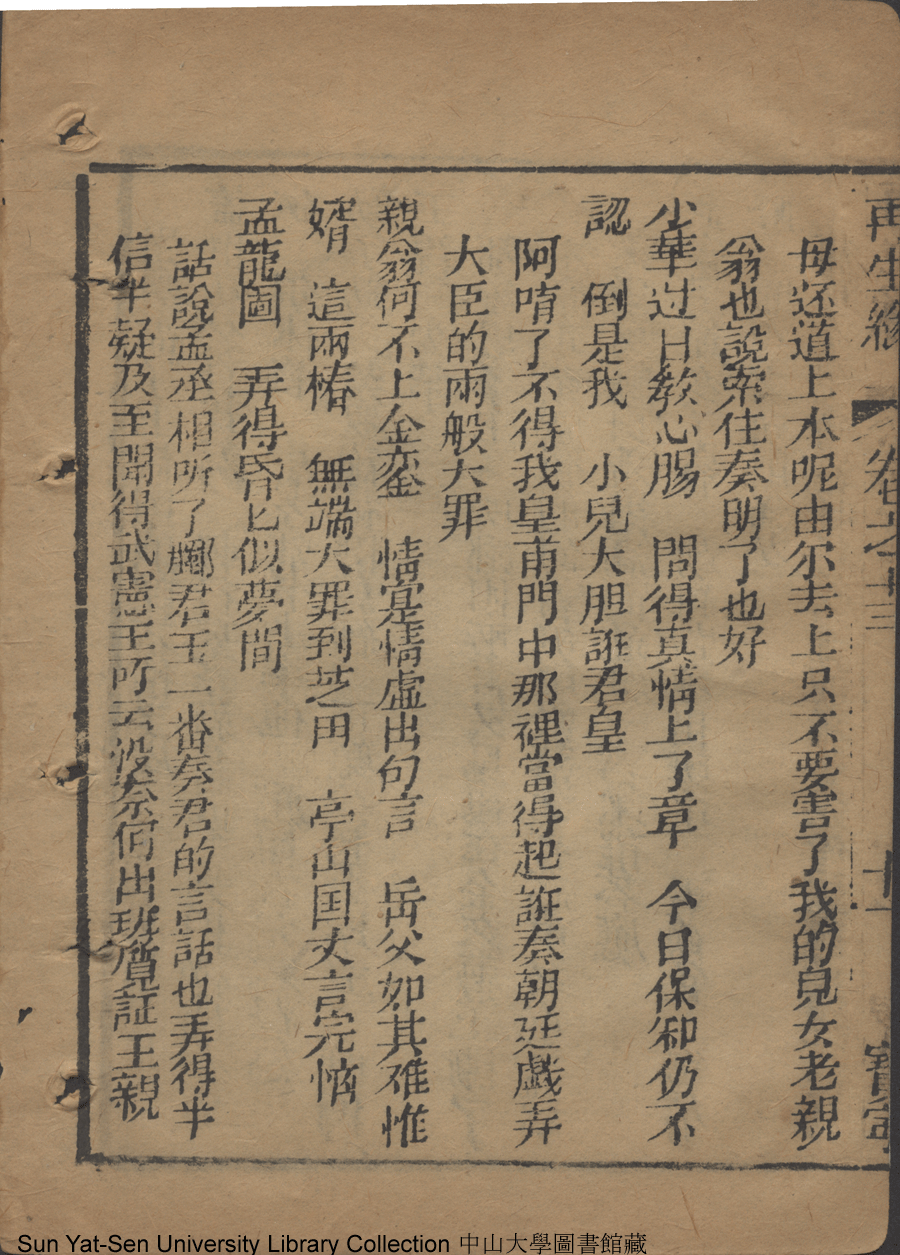 再生緣 卷之十三 十一 寶寧
母还道上本呢由尔去上只不要害了我的兒女老親
翁也說索住奏明了也好
少華过日教心腸 問得真情上了章 今日保卻仍不
認 倒是我 小兒大胆誑君皇
阿唷了不得我皇甫門中那裡當得起誑奏朝廷戯弄
大臣的兩般大罪
親翁何不上金鑾 情寔情虛出句言 岳父如其难惟
婿 這兩樁 無端大罪到芝田 亭山国丈言完惱
孟龍圖 弄得昏匕似夢間
話說孟丞相听了酈君玉一番奏君的言話也弄得半
信半疑及至聞得武憲王所云没奈何出班質証王親
Sun Yat-Sen University Library Collection 中山大學圖書館藏